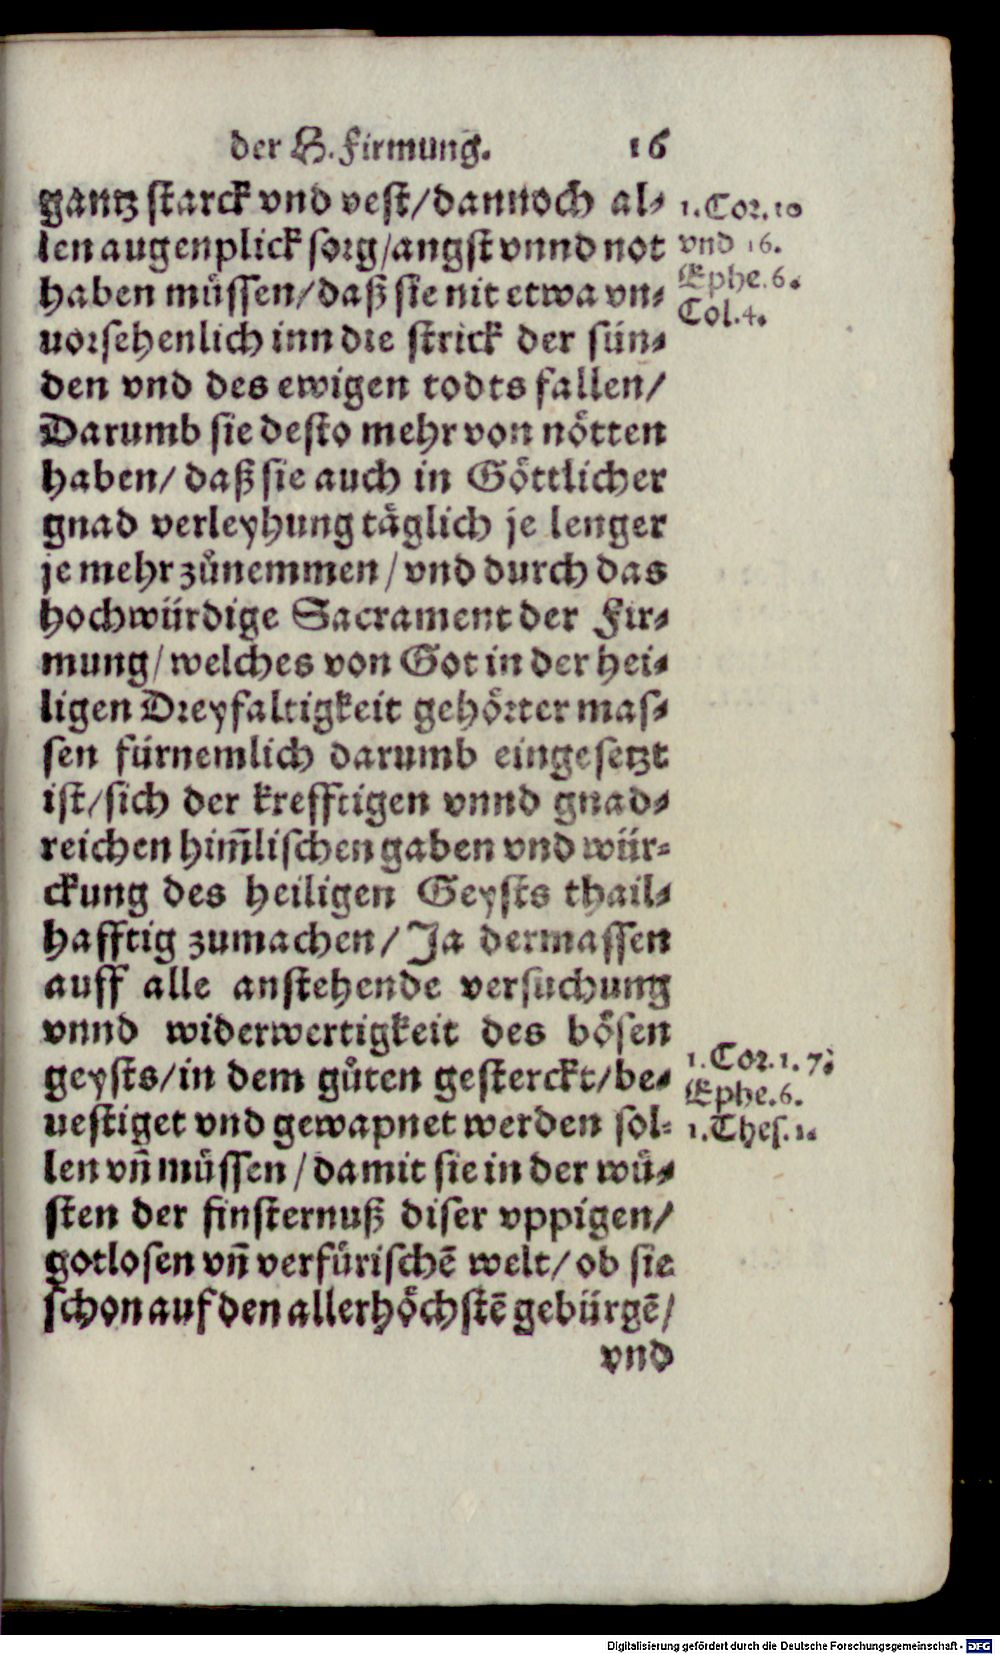 der H. Firmung. 16
gantz starck vnd vest/dannoch al-
len augenplick sorg/angst vnnd not
haben müssen/daß sie nit etwa vn-
uorsehenlich inn die strick der sün-
den vnd des ewigen todts fallen/
Darumb sie desto mehr von nötten
haben/daß sie auch in Göttlicher
gnad verleyhung täglich je lenger
je mehr zůnemmen/vnd durch das
hochwürdige Sacrament der Fir-
mung/welches von Got in der hei-
ligen Dreyfaltigkeit gehörter mas-
sen fürnemlich darumb eingesetzt
ist/sich der krefftigen vnnd gnad-
reichen him̃lischen gaben vnd wür-
ckung des heiligen Geysts thail-
hafftig zumachen/Ja dermassen
auff alle anstehende versuchung
vnnd widerwertigkeit des bösen
geysts/in dem gůten gesterckt/be-
uestiget vnd gewapnet werden sol-
len vñ müssen/damit sie in der wü-
sten der finsternuß diser vppigen/
gotlosen vñ verfürischē welt/ob sie
schon auf den allerhöchstē gebürgē/
vnd
1.Cor.10
vnd 16.
Ephe.6.
Col.4.
1.Cor.1.7.
Ephe.6.
1.Thes.1.
Digitalisierung gefördert durch die Deutsche Forschungsgemeinschaft - DFG